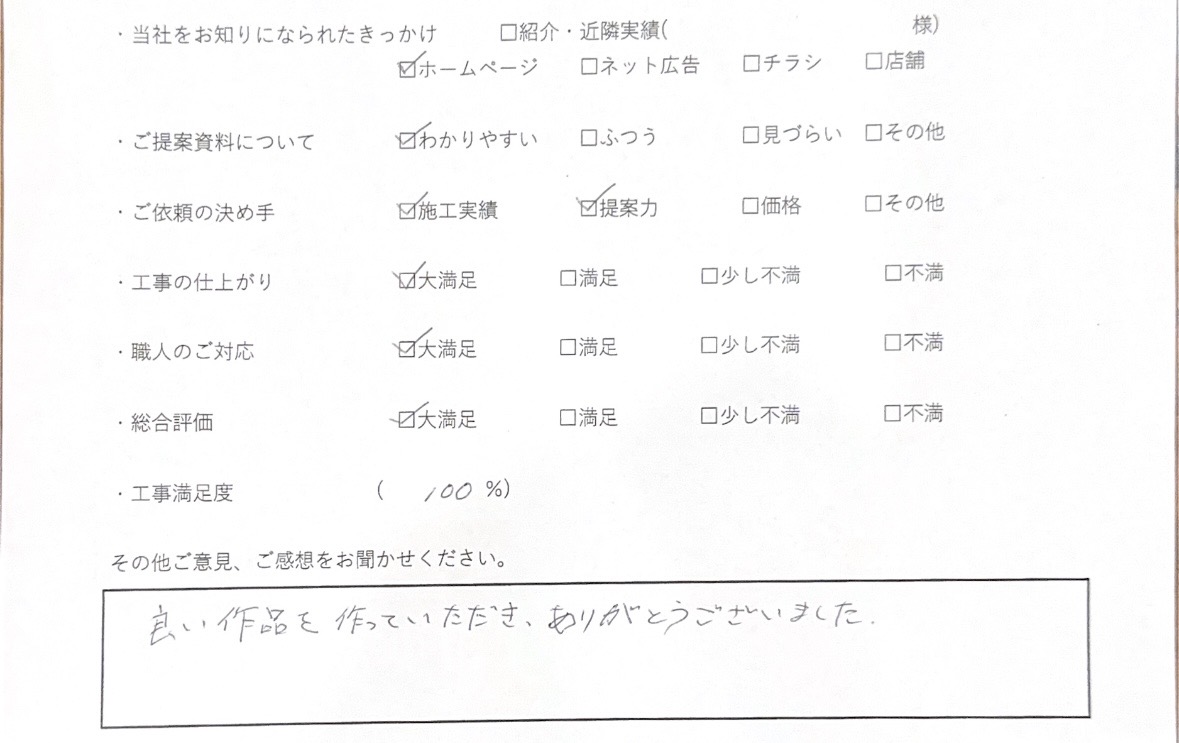 ・当社をお知りになられたきっかけ □紹介・近隣実績( 様)
☑ホームページ □ネット広告 □チラシ □店舗
・ご提案資料について ☑わかりやすい □ふつう □見づらい □その他
・ご依頼の決め手 ☑施工実績 ☑提案力 □価格 □その他
・工事の仕上がり ☑大満足 □満足 □少し不満 □不満
・職人のご対応 ☑大満足 □満足 □少し不満 □不満
・総合評価 ☑大満足 □満足 □少し不満 □不満
・工事満足度 ( 100 %)
その他ご意見、ご感想をお聞かせください。
良い作品を作っていただき、ありがとうございました.